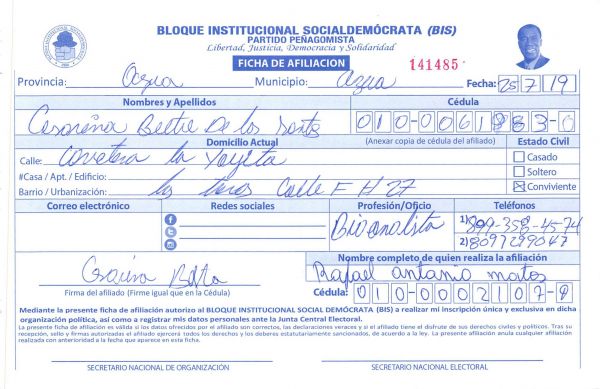 BLOQUE INSTITUCIONAL SOCIALDEMÓCRATA (BIS)
PARTIDO PEÑAGOMISTA
Libertad, Justicia, Democracia y Solidaridad
FICHA DE AFILIACION
141485
Provincia: Azua Municipio: Azua Fecha: 25/7/19
Nombres y Apellidos Cédula
De los Santos 010-0061983-0
Domicilio Actual (Anexar copia de cédula del afiliado) Estado Civil
Calle: Carretera la
#Casa / Apt. / Edificio:
Barrio / Urbanización: los Calle F # 27
Casado
Soltero
Conviviente
Correo electrónico Redes sociales Profesión/Oficio Teléfonos
Bioanalista 1) 899-358-4574
2) 8097299047
Nombre completo de quien realiza la afiliación
Rafael antonio
Firma del afiliado (Firme igual que en la Cédula) Cédula: 010-0002107-
Mediante la presente ficha de afiliación autorizo al BLOQUE INSTITUCIONAL SOCIAL DEMÓCRATA (BIS) a realizar mi inscripción única y exclusiva en dicha
organización política, así como a registrar mis datos personales ante la Junta Central Electoral.
La presente ficha de afiliación es válida si los datos ofrecidos por el afiliado son correctos, las declaraciones veraces y si el afiliado tiene el disfrute de sus derechos civiles y políticos. Tras su
recepción, sello y firmas autorizadas el afiliado ejercerá todos los derechos y los deberes estatutariamente sancionados, de acuerdo a la ley. La presente afiliación anula cualquier afiliación
realizada con anterioridad a la fecha que aparece en esta ficha.
SECRETARIO NACIONAL DE ORGANIZACIÓN SECRETARIO NACIONAL ELECTORAL